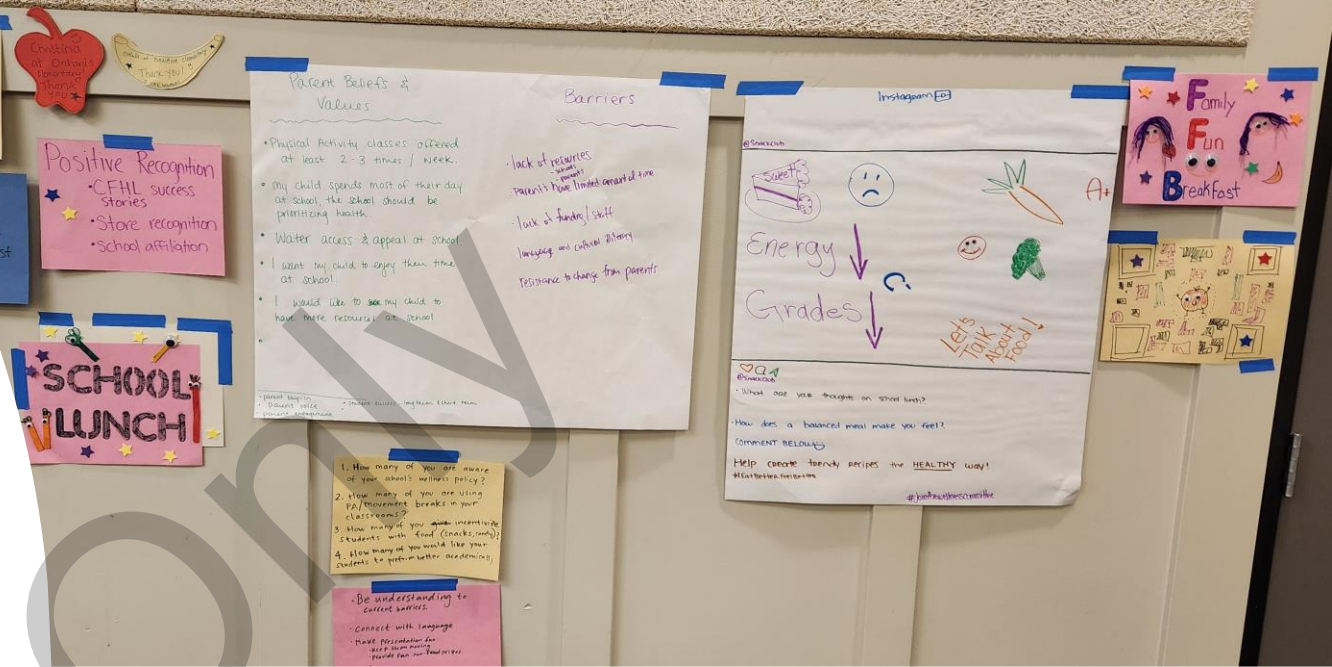 Christina
at Orchards
Elementary
Thank
you
Thank You!
Positive Recognition
• CFHL success
stories
• Store recognition
• School affiliation
st
SCHOOL
LUNCH
Parent Beliefs &
Values
• Physical Activity classes offered
at least 2-3 times / week.
• my child spends most of their day
at school, the school should be
prioritizing health.
• Water access & appeal at school
• I want my child to enjoy their time
at school.
• I would like to my child to
have more resources at school
•
• parent buy-in
• parent voice
• parent engagement
• student success - long term & short term
Barriers
• lack of resources
- schools
- parents
parents have limited amount of time
• lack of funding / staff
language and cultural literacy
resistance to change from parents
1. How many of you are aware
of your school's wellness policy?
2. How many of you are using
PA/movement breaks in your
classrooms?
3. How many of you incentivize
students with food (snacks, candy)?
4. How many of you would like your
students to preform better academically
• Be understanding to
current barriers
• Connect with language
• Make presentation fun
- keep them moving
- provide fun non-food prizes
Instagram
@SnackClub
Sweet
A+
Energy
Grades
Let's
Talk
About
Food!
@SnackClub
• What are your thoughts on school lunch?
• How does a balanced meal make you feel?
COMMENT BELOW
Help create trendy recipes the HEALTHY way!
#EatBetterFeelBetter
#jointhewellnesscommittee
Family
Fun
BreakFast
Only